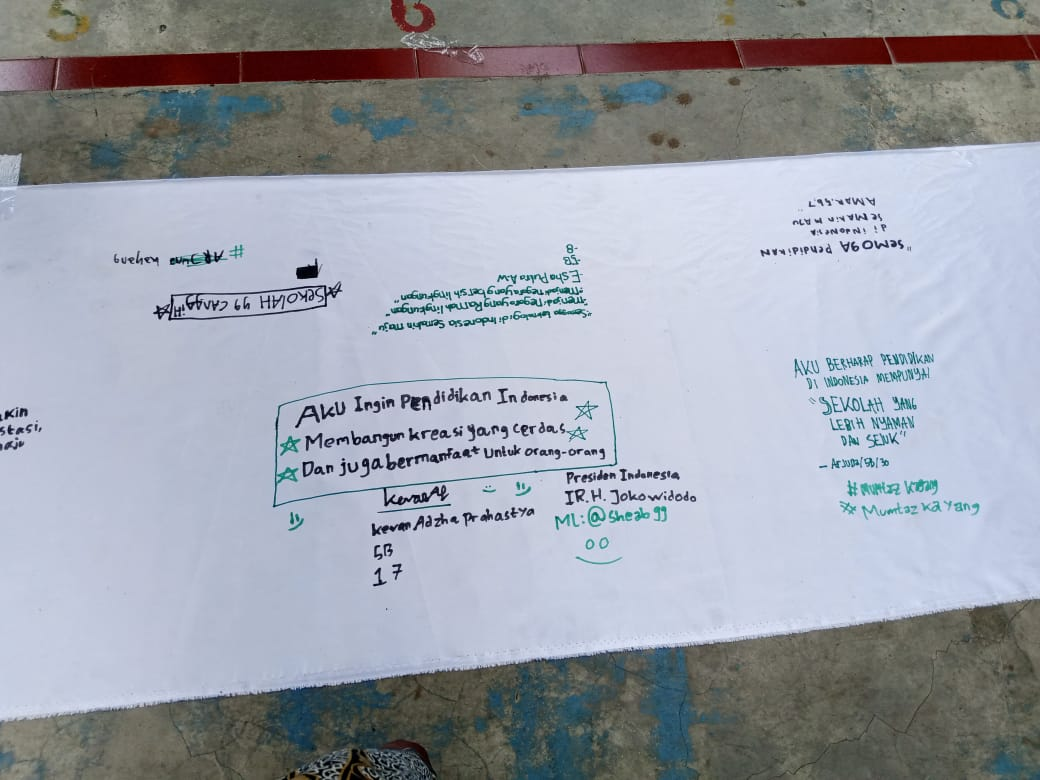 AKU Ingin Pendidikan Indonesia
Membangun kreasi yang cerdas
Dan juga bermanfaat Untuk orang-orang
kevan Adzha Prahastya
5B
17
Presiden Indonesia
IR.H. Jokowidodo
ML:@Sheab99
AKU BERHARAP PENDIDIKAN
DI INDONESIA MEMPUNYAI
"SEKOLAH YANG
LEBIH NYAMAN
DAN SEJUK"
- Arjuna/5B/30
#Mumtaz kayang
Mumtaz kayang
"SEMOGA Pendidikan
di iNDONEsiA
SEMAkiN MAJU
AMAR.5b,7"
"Semoga teknologi di Indonesia Semakin maju"
"menjadi negara yang Ramah lingkungan"
"Menjadi negara yang bersih lingkungan"
Esha Putra A.W
-5B
-8
SEKOLAH yg CANGgiH
# kayang
akin
stasi,
maju